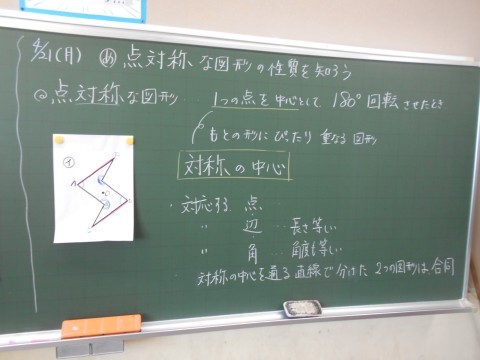 4/21(月) め 点対称な図形の性質を知ろう
◎点対称な図形… 1つの点を中心として180°回転させたとき
もとの形にぴたり重なる図形
対称の中心
・対応する 点
〃 辺 … 長さ等しい
〃 角 … 角度も等しい
対称の中心を通る直線で分けた2つの図形は合同
イ